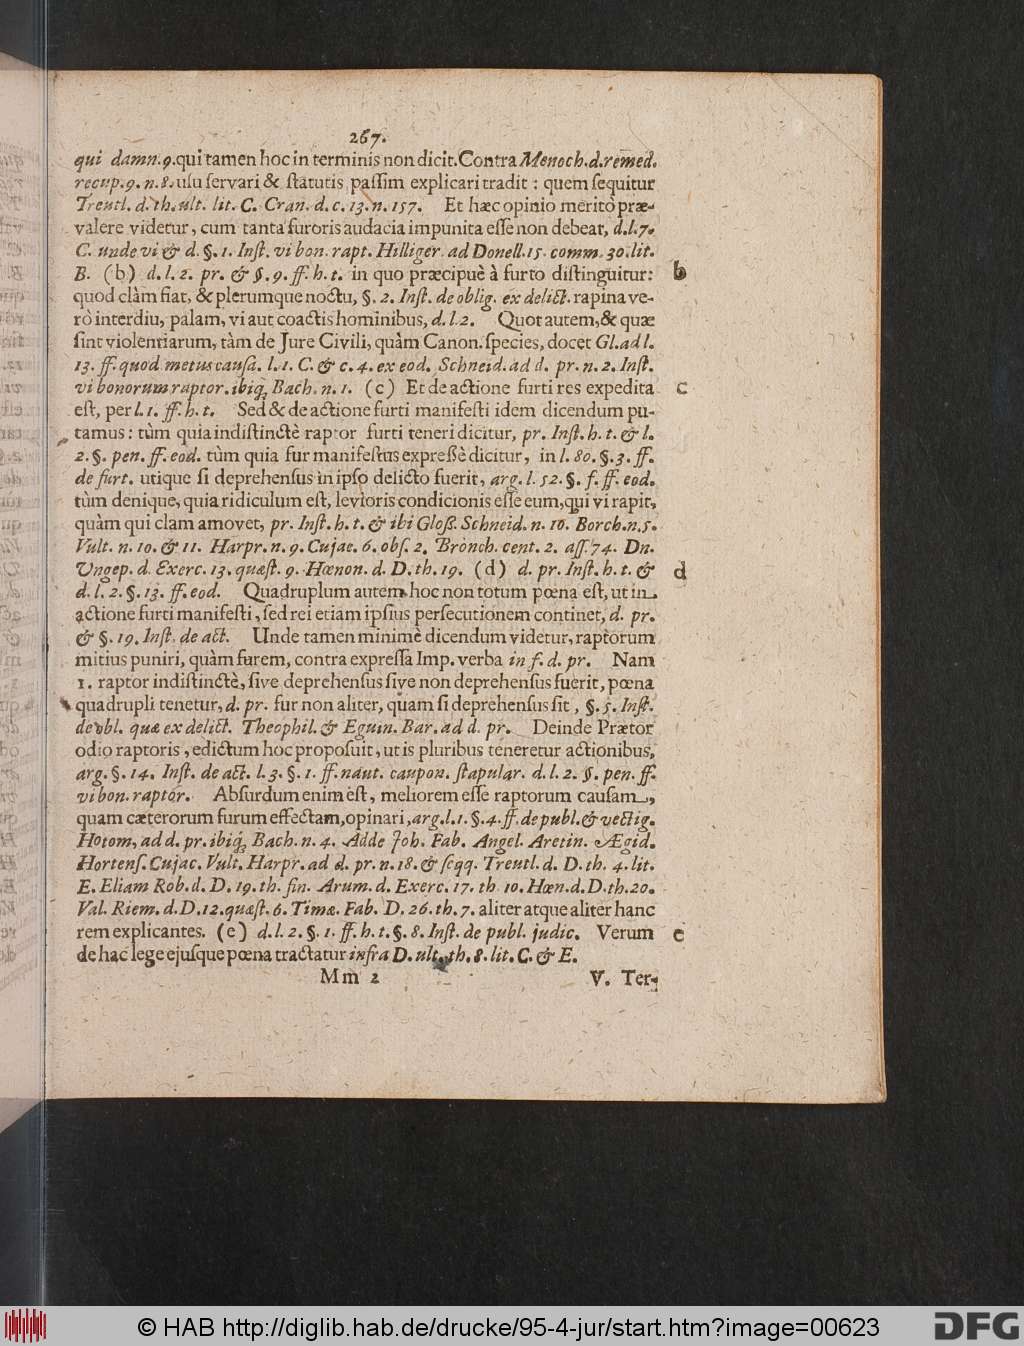 267.
qui damn. 9. qui tamen hoc in terminis non dicit. Contra Menoch. d. remed.
recup. 9. n. 8. usu servari & statutis passim explicari tradit : quem sequitur
Treutl. d. th. ult. lit. C. Cran. d. c. 13. n. 157. Et hæc opinio meritò præ-
valere videtur, cum tanta furoris audacia impunita esse non debeat, d. l. 7.
C. unde vi & d. §. 1. Inst. vi bon. rapt. Hilliger. ad Donell. 15. comm. 30. lit.
B. (b) d. l. 2. pr. & §. 9. ff. h. t. in quo præcipuè à furto distinguitur: b
quod clàm fiat, & plerumque noctu, §. 2. Inst. de oblig. ex delict. rapina ve-
rò interdiu, palam, vi aut coactis hominibus, d. l. 2. Quot autem, & quæ
sint violentiarum, tàm de Jure Civili, quàm Canon. species, docet Gl. ad l.
13. ff. quod metus causa. l. 1. C. & c. 4. ex eod. Schneid. ad d. pr. n. 2. Inst.
vi bonorum raptor. ibiq; Bach. n. 1. (c) Et de actione furti res expedita c
est, per l. 1. ff. h. t. Sed & de actione furti manifesti idem dicendum pu-
tamus : tùm quia indistinctè raptor furti teneri dicitur, pr. Inst. h. t. & l.
2. §. pen. ff. eod. tùm quia fur manifestus expressè dicitur, in l. 80. §. 3. ff.
de furt. utique si deprehensus in ipso delicto fuerit, arg. l. 52. §. f. ff. eod.
tùm denique, quia ridiculum est, levioris condicionis esse eum, qui vi rapit,
quàm qui clam amovet, pr. Inst. h. t. & ibi Gloß. Schneid. n. 10. Borch. n. 5.
Vult. n. 10. & 11. Harpr. n. 9. Cujac. 6. obs. 2. Bronch. cent. 2. ass. 74. Dn.
Ungep. d. Exerc. 13. quæst. 9. Hœnon. d. D. th. 19. (d) d. pr. Inst. h. t. & d
d. l. 2. §. 13. ff. eod. Quadruplum autem hoc non totum pœna est, ut in
actione furti manifesti, sed rei etiam ipsius persecutionem continet, d. pr.
& §. 19. Inst. de act. Unde tamen minimè dicendum videtur, raptorum
mitius puniri, quàm furem, contra expressa Imp. verba in f. d. pr. Nam
1. raptor indistinctè, sive deprehensus sive non deprehensus fuerit, pœna
quadrupli tenetur, d. pr. fur non aliter, quam si deprehensus sit, §. 5. Inst.
de obl. quæ ex delict. Theophil. & Eguin. Bar. ad d. pr. Deinde Prætor
odio raptoris, edictum hoc proposuit, ut is pluribus teneretur actionibus,
arg. §. 14. Inst. de act. l. 3. §. 1. ff. naut. caupon. stapular. d. l. 2. §. pen. ff.
vi bon. raptor. Absurdum enim est, meliorem esse raptorum causam,
quam cæterorum furum effectam, opinari, arg. l. 1. §. 4. ff. de publ. & vectig.
Hotom. ad d. pr. ibiq; Bach. n. 4. Adde Joh. Fab. Angel. Aretin. Ægid.
Hortens. Cujac. Vult. Harpr. ad d. pr. n. 18. & seqq. Treutl. d. D. th. 4. lit.
E. Eliam Rob. d. D. 19. th. fin. Arum. d. Exerc. 17. th. 10. Hœn. d. D. th. 20.
Val. Riem. d. D. 12. quæst. 6. Timæ. Fab. D. 26. th. 7. aliter atque aliter hanc
rem explicantes. (e) d. l. 2. §. 1. ff. h. t. §. 8. Inst. de publ. judic. Verum e
de hac lege ejusque pœna tractatur infra D. ult. th. 8. lit. C. & E.
Mm 2 V. Ter-
© HAB http://diglib.hab.de/drucke/95-4-jur/start.htm?image=00623 DFG